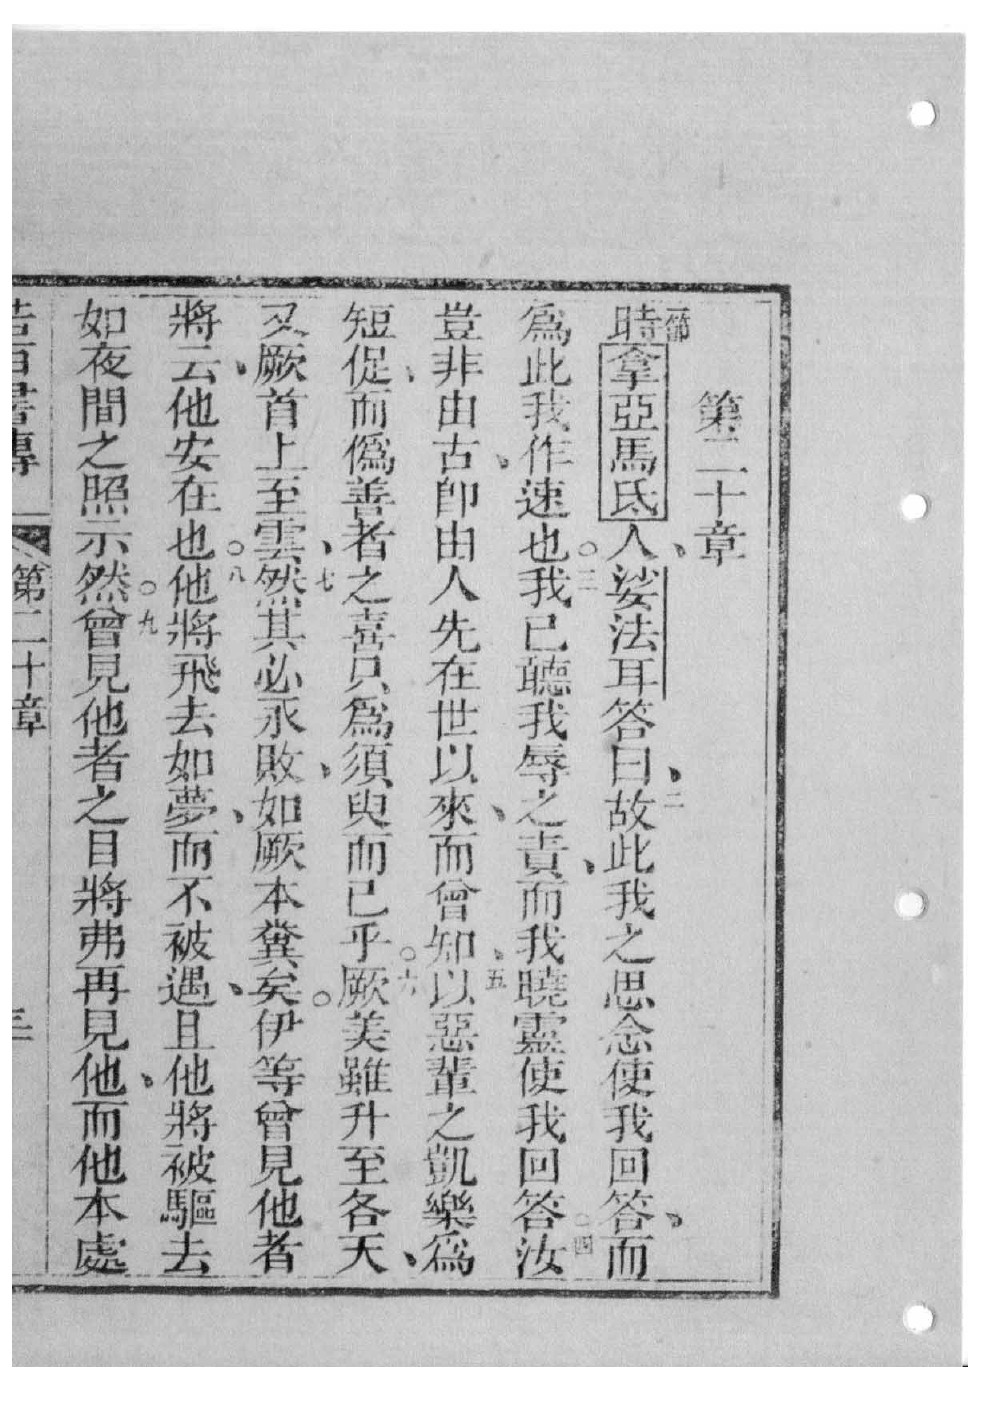 第二十章
一節時拿亞馬氐人、娑法耳答曰、二故此我之思念使我回答、而
爲此我作速也○三我已聽我辱之責、而我曉靈使我回答○四汝
豈非由古、卽由人先在世以來、而曾知、五以惡輩之凱樂爲
短促、而僞善者之喜只爲須臾而已乎○六厥美雖升至各天、
又厥首上至雲、七然其必永敗、如厥本糞矣○伊等曾見他者
將云、他安在也○八他將飛去如夢、而不被遇、且他將被驅去
如夜間之照示然○九曾見他者之目將弗再見他、而他本處
書傳 第二十章 三